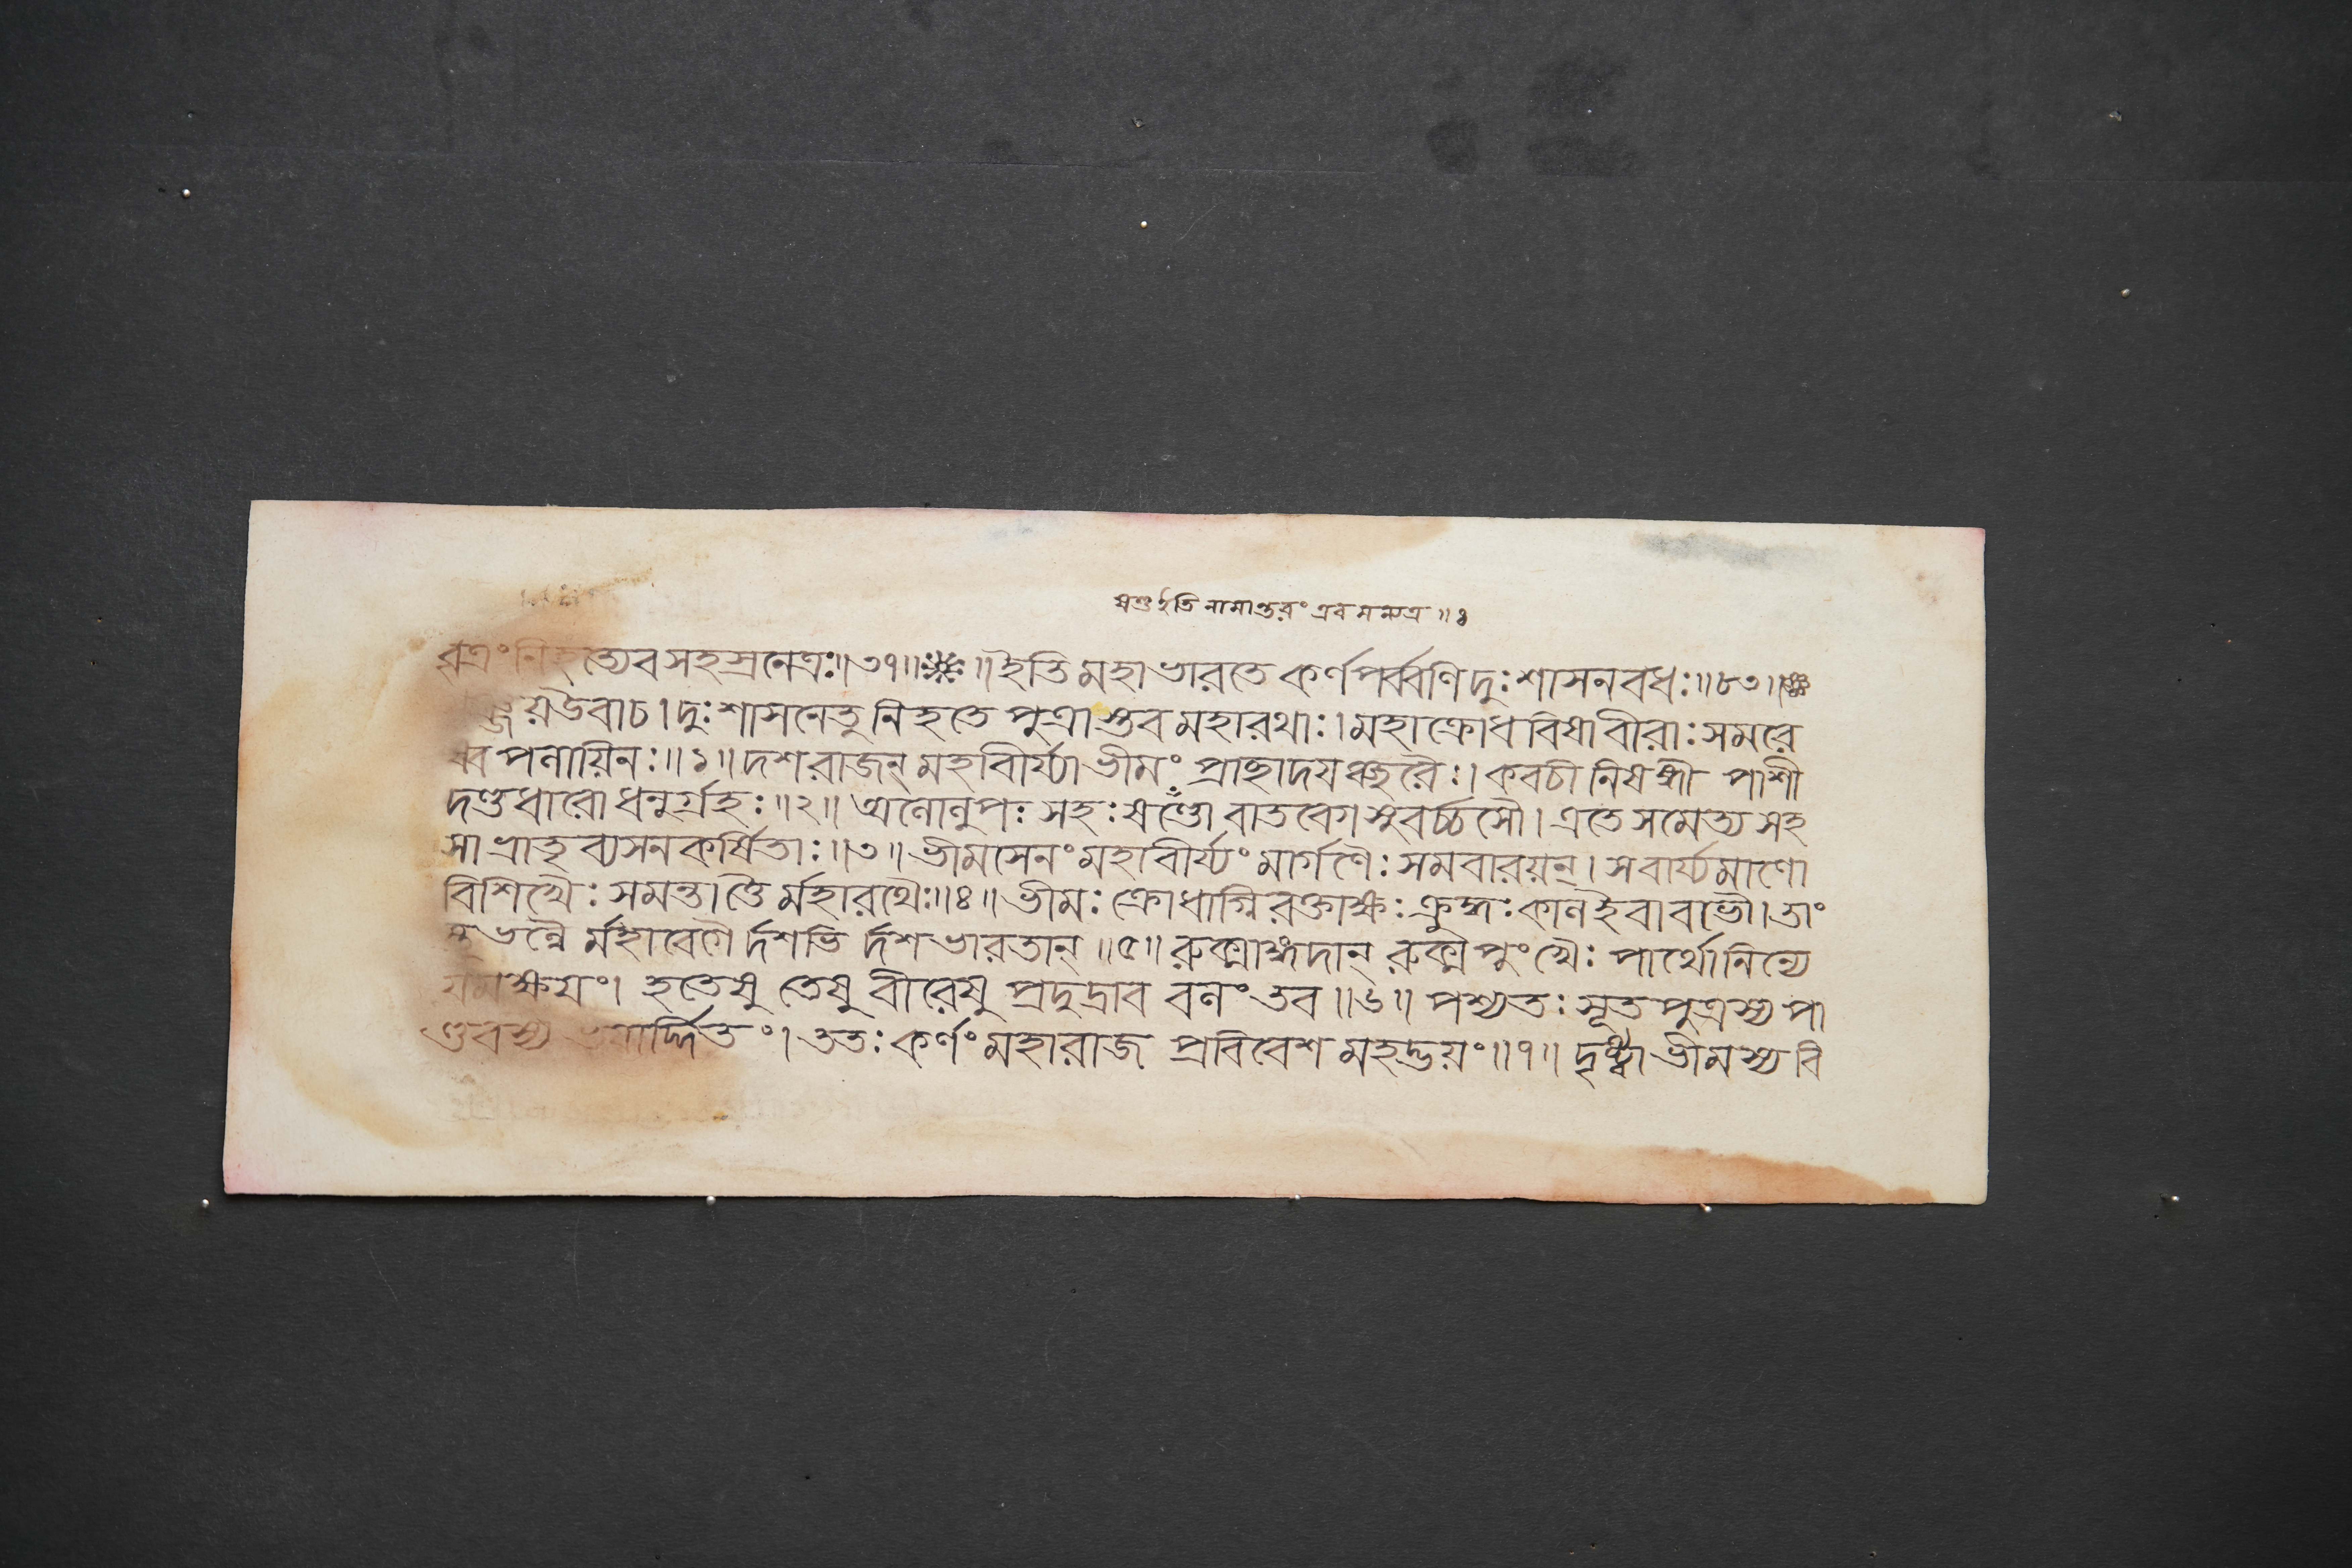 ষণ্ড ইতি নামান্তরং এবমন্যত্র ॥ ঃ
বৃত্রং নিহত্যেব সহস্রনেত্রঃ॥৩৭॥ ॥ইতি মহাভারতে কর্ণপর্ব্বণি দুঃশাসনবধঃ॥৮৩॥
ঞ্জয়উবাচ। দুঃশাসনেতু নিহতে পুত্রাস্তব মহারথাঃ। মহাক্রোধবিষাবীরাঃ সমরে
ষ্বপলায়িনঃ॥১॥ দশরাজন্ মহাবীর্য্যা ভীমং প্রাচ্ছাদয়ঞ্ছরৈঃ। কবচী নিষঙ্গী পাশী
দণ্ডধারো ধনুর্গ্রহঃ॥২॥ অলোলুপঃ সহঃ ষণ্ডো বাতবেগসুবর্চ্চসৌ। এতে সমেত্য সহ
সা ভ্রাতৃব্যসনকর্ষিতাঃ॥৩॥ ভীমসেনং মহাবীর্য্যং মার্গণৈঃ সমবারয়ন্। সবার্য্যমাণো
বিশিখৈঃ সমন্তাত্তৈ র্মহারথৈঃ॥৪॥ ভীমঃ ক্রোধাগ্নিরক্তাক্ষঃ ক্রুদ্ধঃ কালইবাবভৌ। তাং
স্তুভল্লৈ র্মহাবেগৈ র্দশভি র্দশভারতান্॥৫॥ রুক্মাঙ্গদান্ রুক্মপুংখৈঃ পার্থোনিন্যে
যমক্ষয়ং। হতেষু তেষু বীরেষু প্রদুদ্রাব বলং তব॥৬॥ পশ্যতঃ সূতপুত্রস্য পা
ণ্ডবস্য ভয়ার্দ্দিতং। ততঃ কর্ণং মহারাজ প্রবিবেশ মহদ্ভয়ং॥৭॥ দৃষ্ট্বা ভীমস্য বি